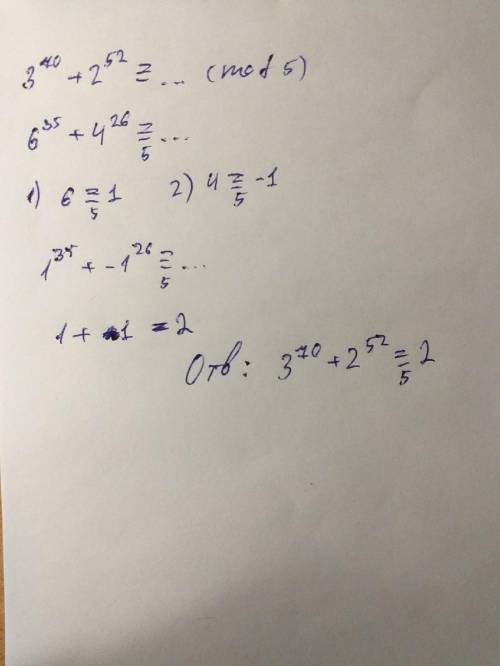 3^70 + 2^52 ≡ ... (mod 5)
6^35 + 4^26 ≡_5 ...
1) 6 ≡_5 1 2) 4 ≡_5 -1
1^35 + -1^26 ≡_5 ...
1 + 1 = 2
Отв: 3^70 + 2^52 ≡_5 2